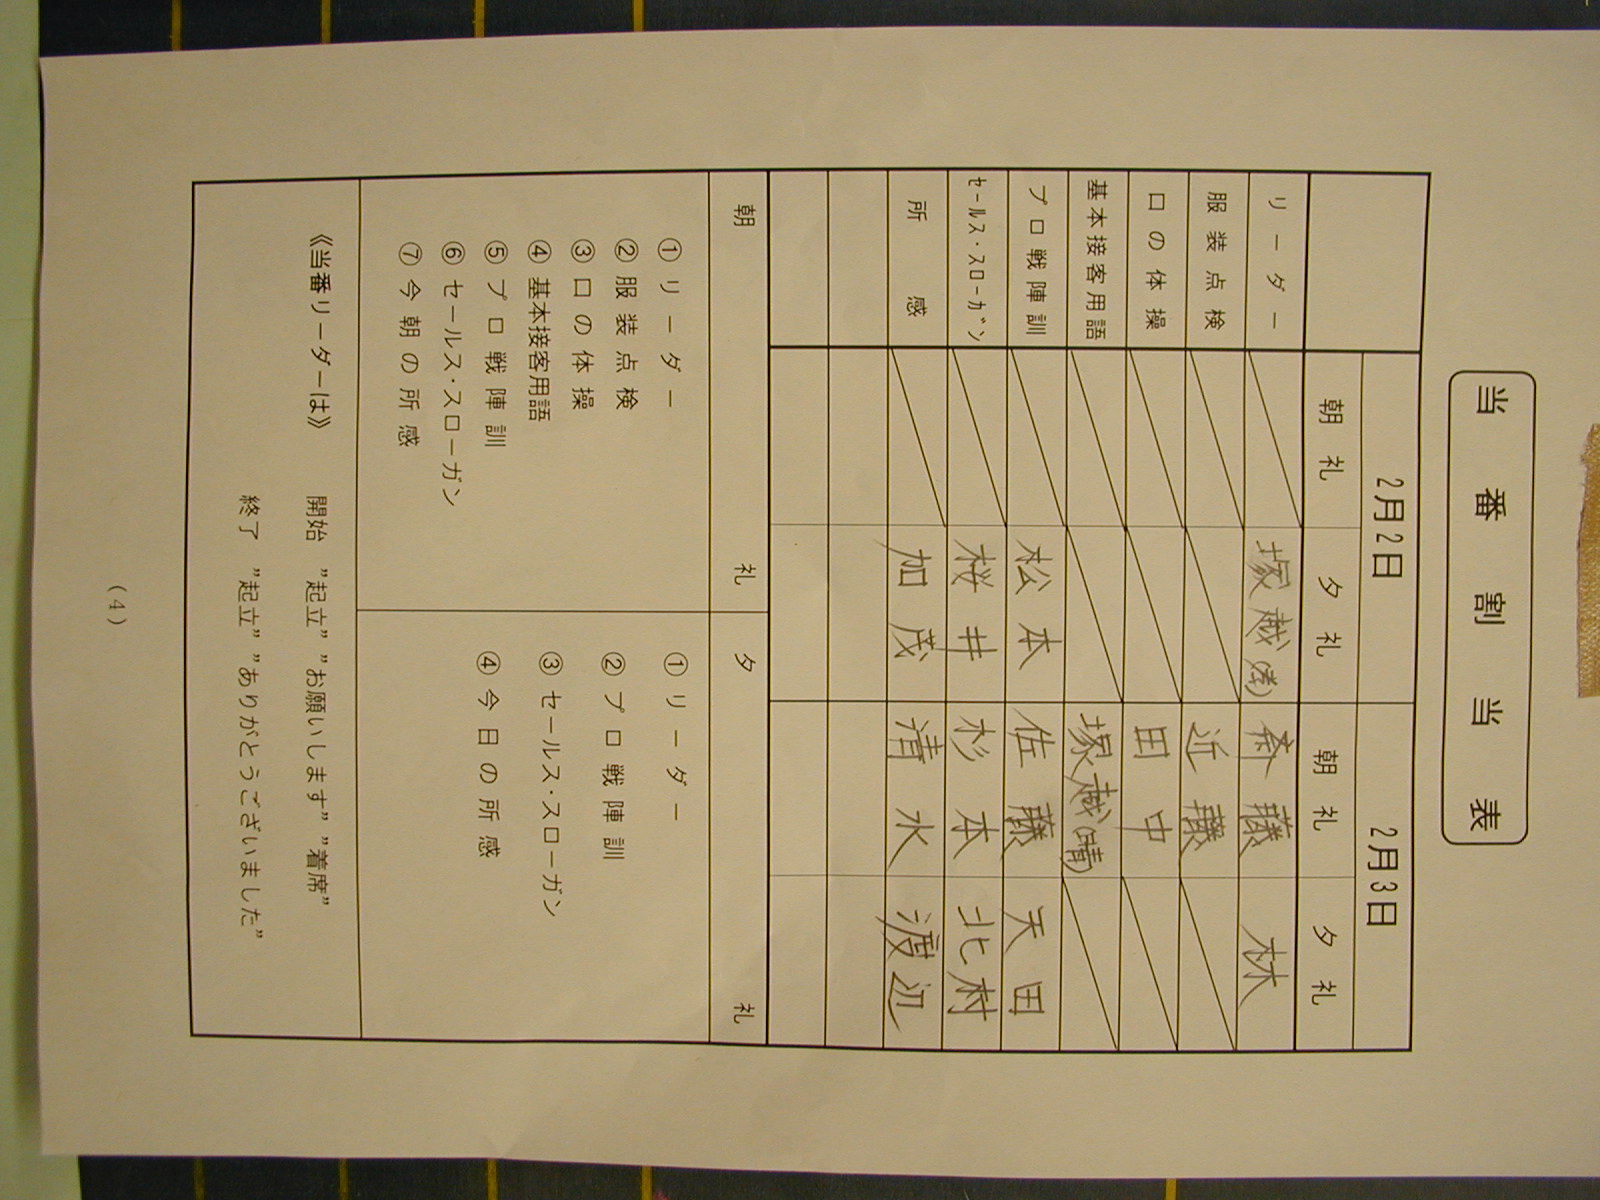 当番割当表
2月2日 2月3日
朝礼 夕礼 朝礼 夕礼
リーダー 塚越(孝) 斉藤 林
服装点検 近藤
口の体操 田中
基本接客用語 塚越(晴)
プロ戦陣訓 松本 佐藤 天田
セールス・スローガン 桜井 杉本 北村
所感 加茂 清水 渡辺
朝礼 夕礼
① リーダー ① リーダー
② 服装点検
② プロ戦陣訓
③ 口の体操
③ セールス・スローガン
④ 基本接客用語
④ 今日の所感
⑤ プロ戦陣訓
⑥ セールス・スローガン
⑦ 今朝の所感
《当番リーダーは》 開始 ”起立” ”お願いします” ”着席”
終了 ”起立” ”ありがとうございました”
(4)